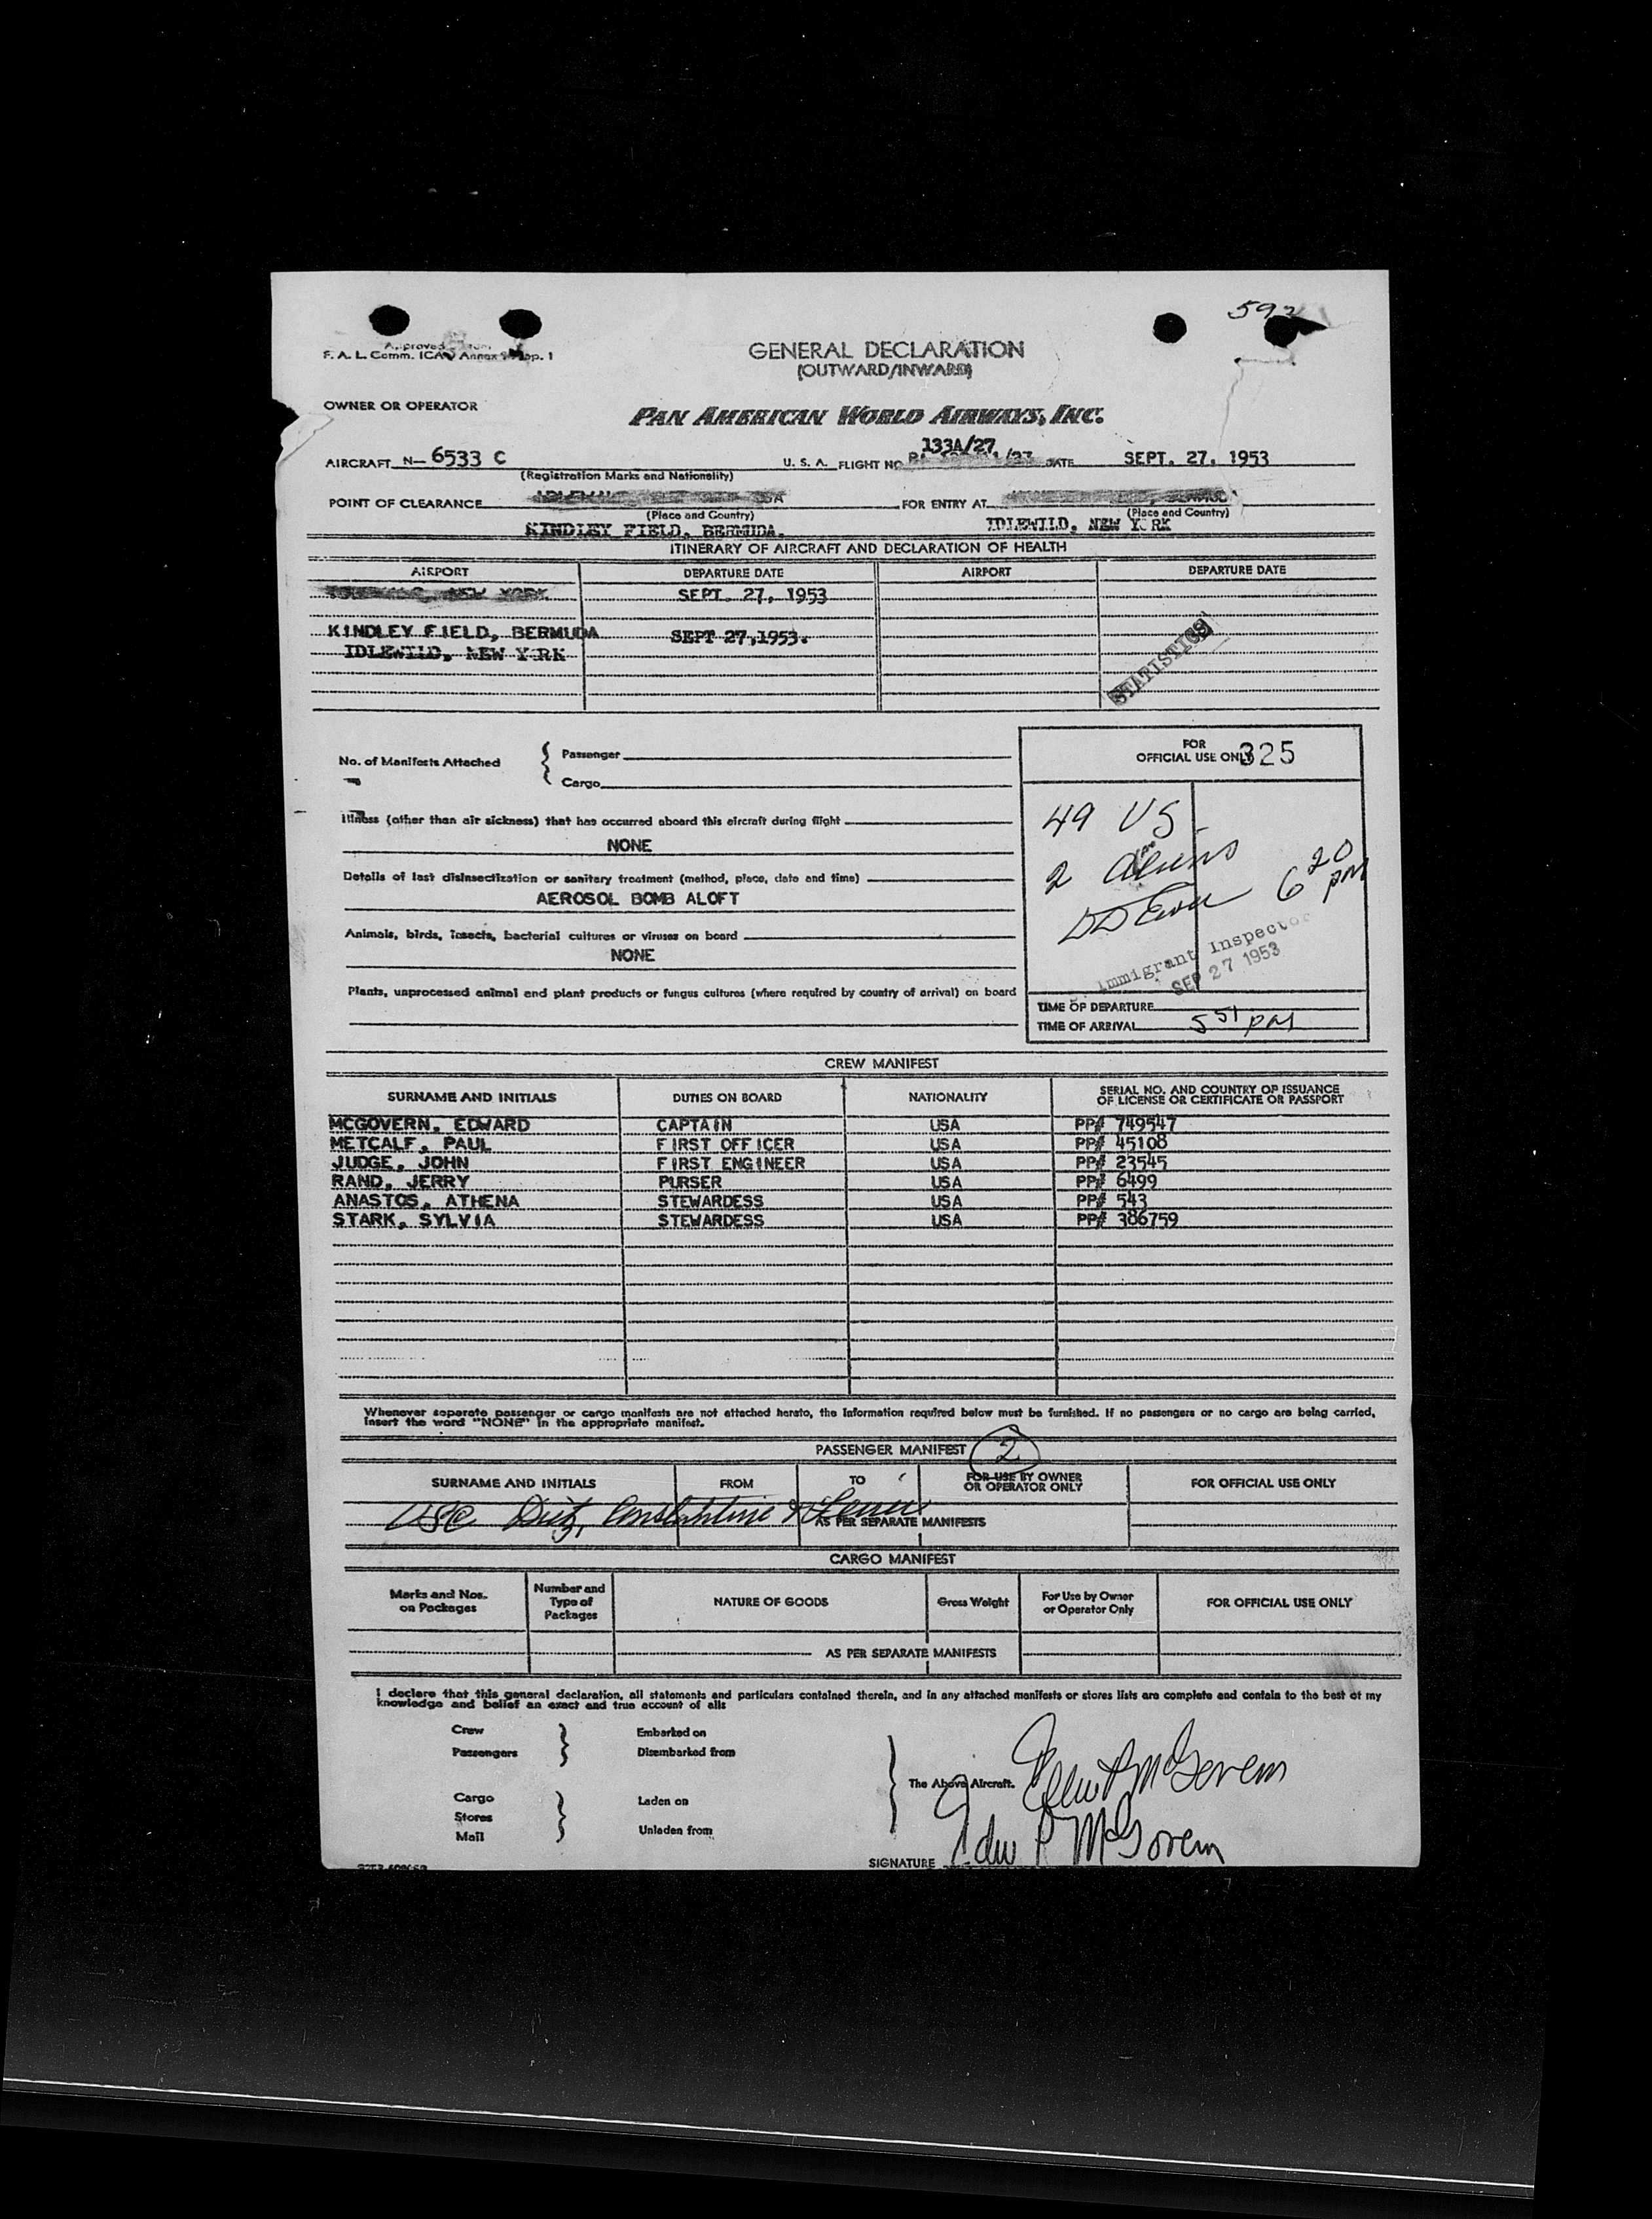 Approved
F. A. L. Comm. ICAO Annex 9 App. 1
GENERAL DECLARATION
(OUTWARD/INWARD)
OWNER OR OPERATOR
PAN AMERICAN WORLD AIRWAYS, INC.
133A/27
AIRCRAFT N- 6533 C U. S. A. FLIGHT NO. DATE SEPT. 27, 1953
(Registration Marks and Nationality)
POINT OF CLEARANCE FOR ENTRY AT
(Place and Country) (Place and Country)
KINDLEY FIELD, BERMUDA. IDLEWILD, NEW Y RK
ITINERARY OF AIRCRAFT AND DECLARATION OF HEALTH
AIRPORT DEPARTURE DATE AIRPORT DEPARTURE DATE
NEW YORK SEPT. 27, 1953
KINDLEY FIELD, BERMUDA SEPT 27,1953.
IDLEWILD, NEW Y RK
STATISTICS
No. of Manifests Attached
Passenger
Cargo
Illness (other than air sickness) that has occurred aboard this aircraft during flight
NONE
Details of last disinsectization or sanitary treatment (method, place, date and time)
AEROSOL BOMB ALOFT
Animals, birds, insects, bacterial cultures or viruses on board
NONE
Plants, unprocessed animal and plant products or fungus cultures (where required by country of arrival) on board
FOR
OFFICIAL USE ONLY 325
49 US
2 Aliens
6 20 PM
Immigrant Inspector
SEP 27 1953
TIME OF DEPARTURE
TIME OF ARRIVAL 5 51 PM
CREW MANIFEST
SURNAME AND INITIALS DUTIES ON BOARD NATIONALITY SERIAL NO. AND COUNTRY OF ISSUANCE
OF LICENSE OR CERTIFICATE OR PASSPORT
MCGOVERN, EDWARD CAPTAIN USA PP# 749547
METCALF, PAUL FIRST OFFICER USA PP# 45108
JUDGE, JOHN FIRST ENGINEER USA PP# 23545
RAND, JERRY PURSER USA PP# 6499
ANASTOS, ATHENA STEWARDESS USA PP# 543
STARK, SYLVIA STEWARDESS USA PP# 386759
Whenever separate passenger or cargo manifests are not attached hereto, the information required below must be furnished. If no passengers or no cargo are being carried,
insert the word "NONE" in the appropriate manifest.
PASSENGER MANIFEST 2
SURNAME AND INITIALS FROM TO FOR USE BY OWNER
OR OPERATOR ONLY FOR OFFICIAL USE ONLY
USC Dietz, Constantine &
AS PER SEPARATE MANIFESTS
CARGO MANIFEST
Marks and Nos.
on Packages
Number and
Type of
Packages
NATURE OF GOODS
Gross Weight
For Use by Owner
or Operator Only
FOR OFFICIAL USE ONLY
AS PER SEPARATE MANIFESTS
I declare that this general declaration, all statements and particulars contained therein, and in any attached manifests or stores lists are complete and contain to the best of my
knowledge and belief an exact and true account of all:
Crew
Passengers
Embarked on
Disembarked from
Cargo
Stores
Mail
Laden on
Unladen from
The Above Aircraft.
Edw P McGovern
SIGNATURE Edw P McGovern